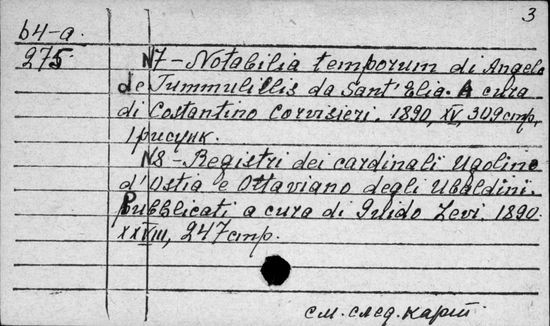 3
64-a.
275 N7-Notabilia temporum di Angelo
de Tummulillis da Sant'Elia. A cura
di Costantino Corvisieri. 1890, XV, 309 стр,
1 рисунк.
N8-Registri dei cardinali Ugolino
d'Ostia e Ottaviano degli Ubaldini.
Pubblicati a cura di Guido Levi. 1890.
XXVIII, 247 стр.
см. след. карт.